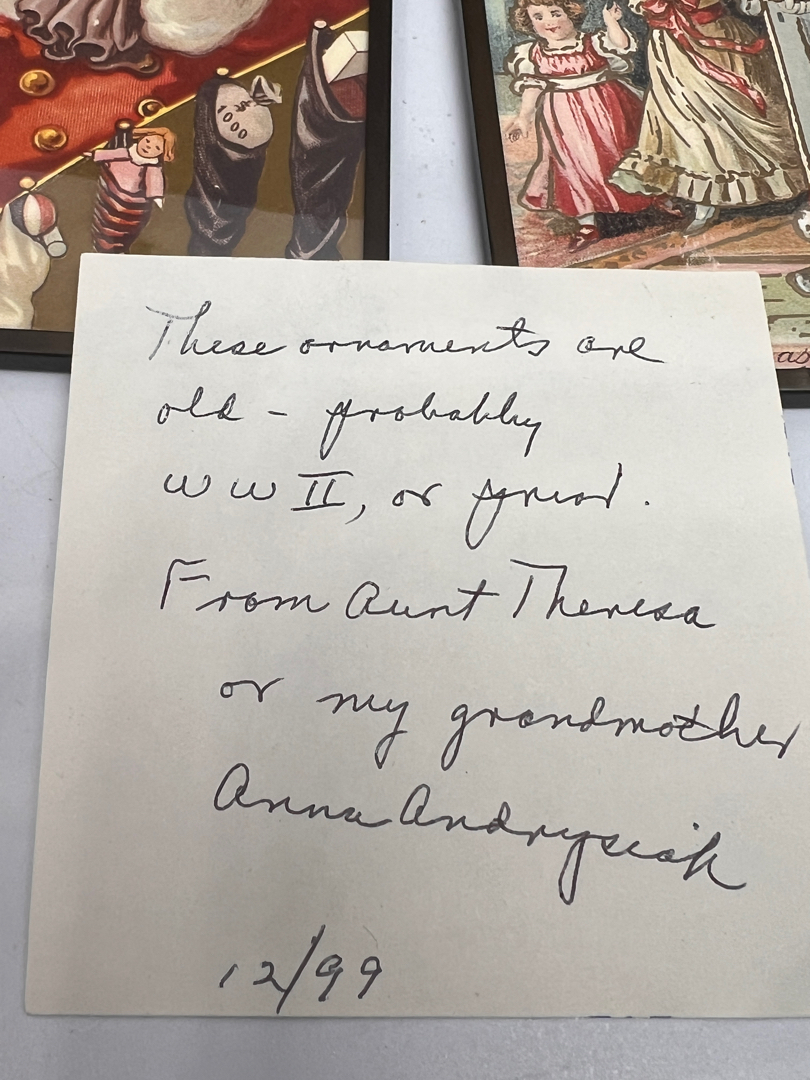 1000
as
These ornaments are
old - probably
WW II, or
From Aunt Theresa
or my grandmother
Anna Andrysiak
12/99